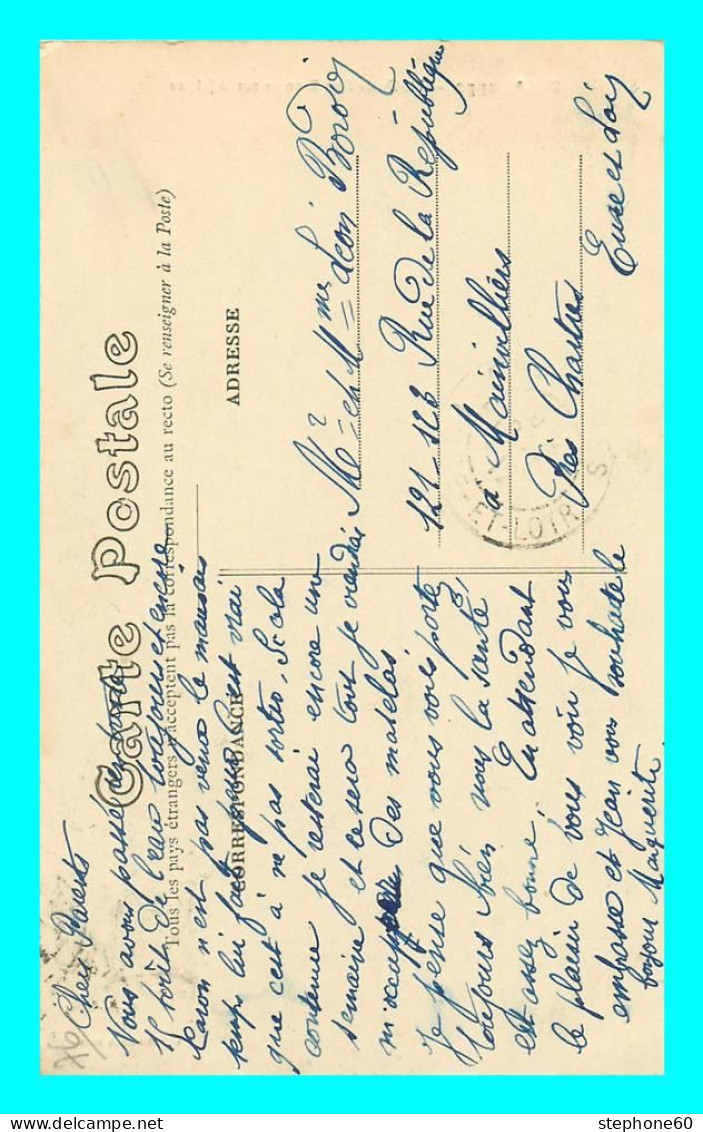 Carte Postale
Tous les pays étrangers n'acceptent pas la correspondance au recto (Se renseigner à la Poste)
CORRESPONDANCE
ADRESSE
76
Chers Parents
Nous avons passé
De l'eau toujours et encore
n'est pas venu le mauvais
temps lui faut peur il est vrai
que c'est à ne pas sortir. Si cela
continue je resterai encore une
semaine et ce sera tout je viendrai
m'occuper des matelas
Je pense que vous vous portez
toujours bien nous la santé
est assez bonne. En attendant
le plaisir de vous voir je vous
embrasse et Jean vous souhaite le
bonjour Marguerite
Mr et Mme Léon
121-123 Rue de la République
à Mainvilliers
Près Chartres
Eure et Loir
ET-LOIR
stephone60